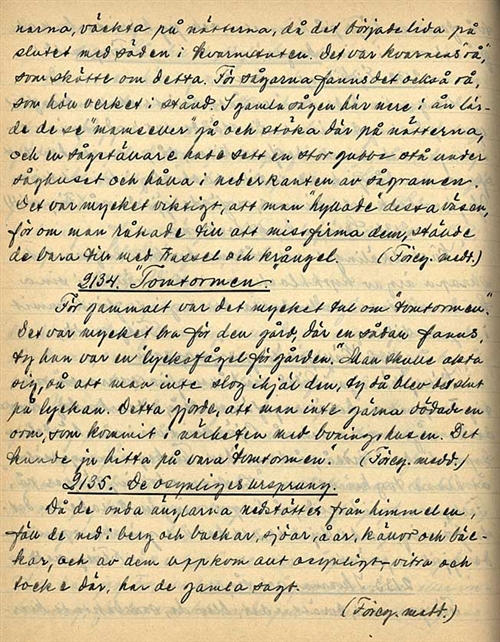 narna, väckta på nätterna, då det började lida på
slutet med säden i kvarntuten. Det var kvarnens "rå",
som skötte om detta. För sågarna fanns det också rå,
som höll verket i stånd. I gamla sågen här nere i ån lär-
de de se "mamseller" gå och stöka där på nätterna,
och en sågställare hade sett en stor gubbe stå under
såghuset och hålla i nederkanten av sågramen.
Det var mycket viktigt, att man hyllade dessa väsen,
för om man råkade till att missfirma dem, ställde
de bara till med trassel och krångel. (Föreg. medd.)
2134. "Tomtormen."
För gammalt var det mycket tal om "tomtormen."
Det var mycket bra för den gård, där en sådan fanns,
ty han var en "lyckofågel för gården." Man skulle akta
sig, så att man inte slog ihjäl den, ty då blev det slut
på lyckan. Detta gjorde, att man inte gärna dödade en
orm, som kommit i närheten med boningshusen. Det
kunde ju hitta på vara "tomtormen". (Föreg. medd.)
2135. De osynligas ursprung.
Då de onda änglarna nedstöttes från himmelen,
föll de ned i berg och backar, sjöar, åar, källor och bäc-
kar, och av dem uppkom allt osynligt – vitra och
tocke där, har de gamla sagt.
(Föreg. medd.)